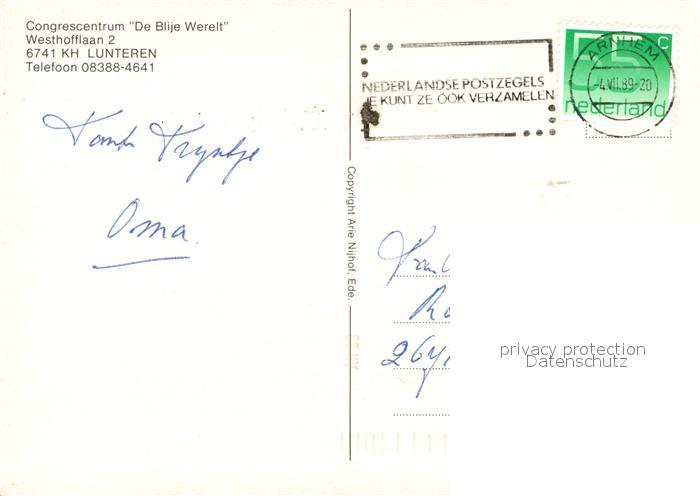 Congrescentrum "De Blije Werelt"
Westhofflaan 2
6741 KH LUNTEREN
Telefoon 08388-4641
Tante Tryntje
Oma
Copyright Arie Nijhof, Ede.
NEDERLANDSE POSTZEGELS
JE KUNT ZE ÓÓK VERZAMELEN
55 c
nederland
ARNHEM
-4.VII.89-20
privacy protection
Datenschutz